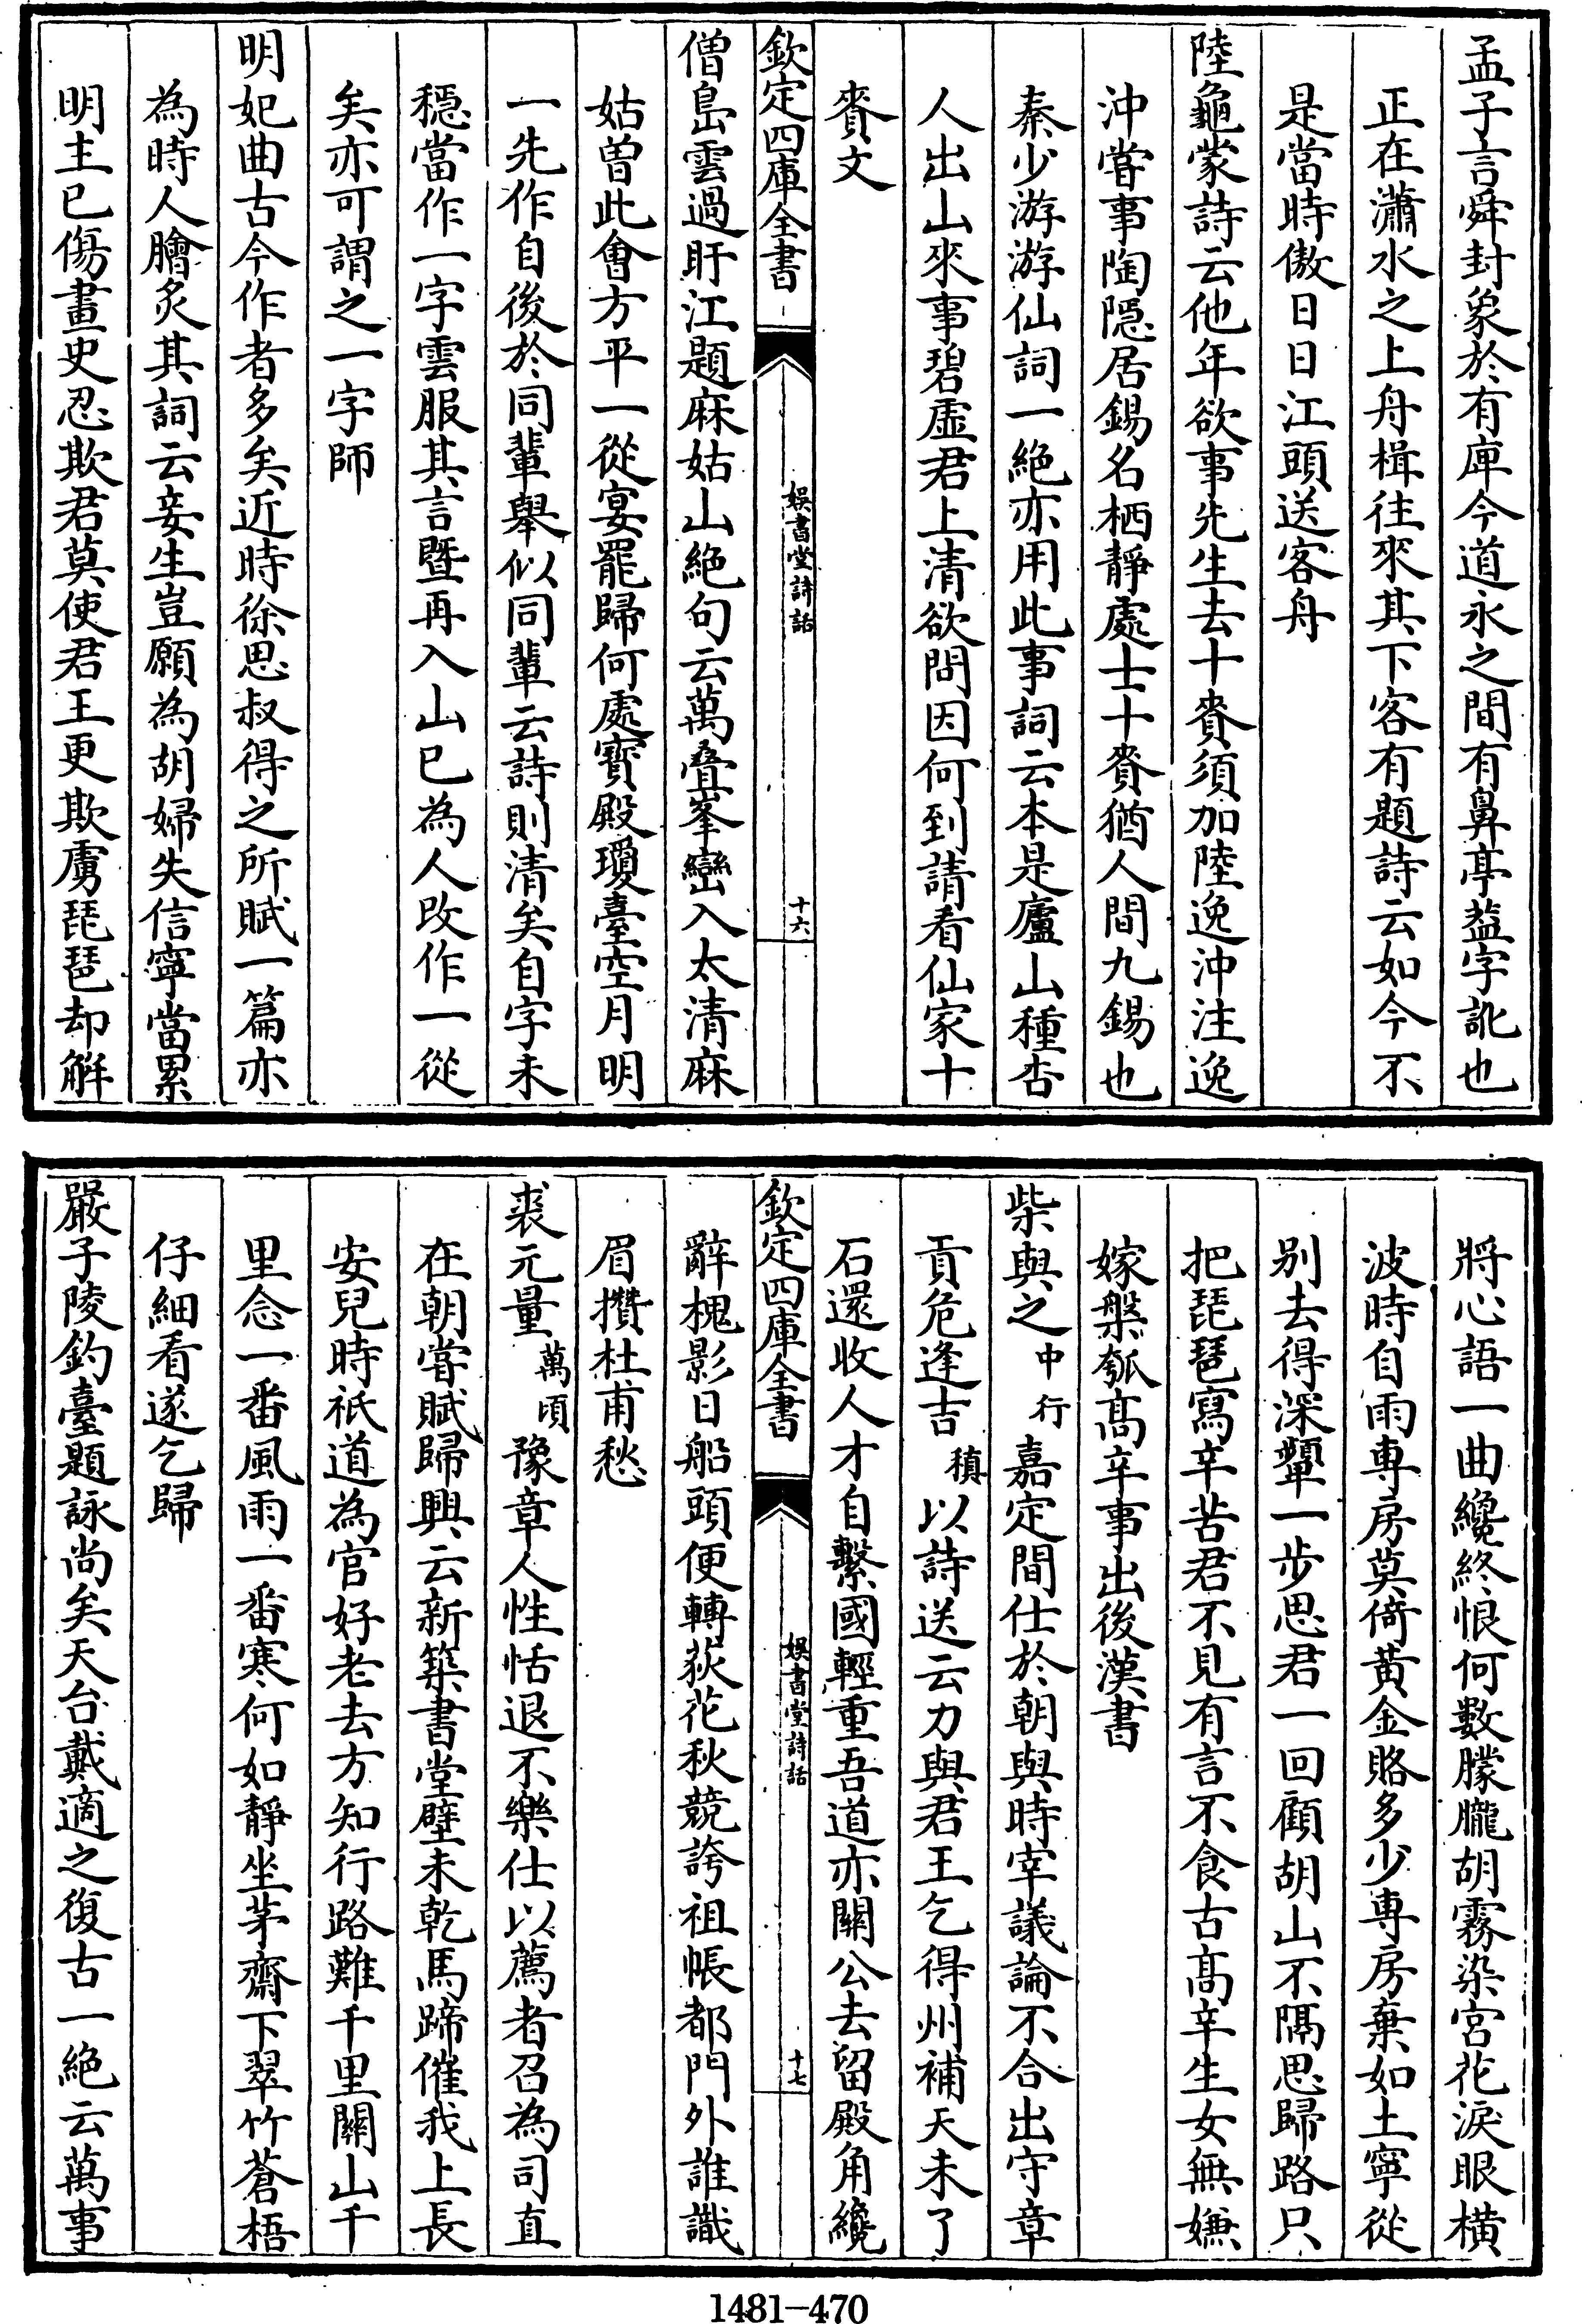 孟子言舜封象於有庳今道永之間有鼻亭葢字訛也
正在瀟水之上舟楫往來其下客有題詩云如今不
是當時傲日日江頭送客舟
陸龜蒙詩云他年欲事先生去十賚須加陸逸沖注逸
沖嘗事陶隠居錫名栖靜處士十賚猶人間九錫也
秦少游游仙詞一絶亦用此事詞云本是廬山種杏
人出山來事碧虚君上清欲問因何到請看仙家十
賚文
欽定四庫全書
娛書堂詩話
十六
僧島雲過盱江題麻姑山絶句云萬疊峯巒入太清麻
姑曽此會方平一從宴罷歸何處寳殿瓊臺空月明
一先作自後於同輩舉似同輩云詩則清矣自字未
穩當作一字雲服其言暨再入山已為人改作一從
矣亦可謂之一字師
明妃曲古今作者多矣近時徐思叔得之所賦一篇亦
為時人膾炙其詞云妾生豈願為胡婦失信寧當累
明主已傷畫史忍欺君莫使君王更欺虜琵琶却解
將心語一曲纔終恨何數朦朧胡霧染宮花淚眼橫
波時自雨専房莫倚黄金賂多少専房棄如土寧從
别去得深顰一步思君一回顧胡山不隔思歸路只
把琵琶寫辛苦君不見有言不食古髙辛生女無嫌
嫁槃瓠髙辛事出後漢書
柴與之中行嘉定間仕於朝與時宰議論不合出守章
貢危逢吉稹以詩送云力與君王乞得州補天未了
石還收人才自繫國輕重吾道亦關公去留殿角纔
欽定四庫全書
娛書堂詩話
十七
辭槐影日船頭便轉荻花秋競誇祖帳都門外誰識
眉攢杜甫愁
裘元量萬頃豫章人性恬退不樂仕以薦者召為司直
在朝嘗賦歸興云新築書堂壁未乾馬蹄催我上長
安兒時祇道為官好老去方知行路難千里關山千
里念一番風雨一番寒何如靜坐茅齋下翠竹蒼梧
仔細看遂乞歸
嚴子陵釣臺題詠尚矣天台戴適之復古一絶云萬事
1481-470